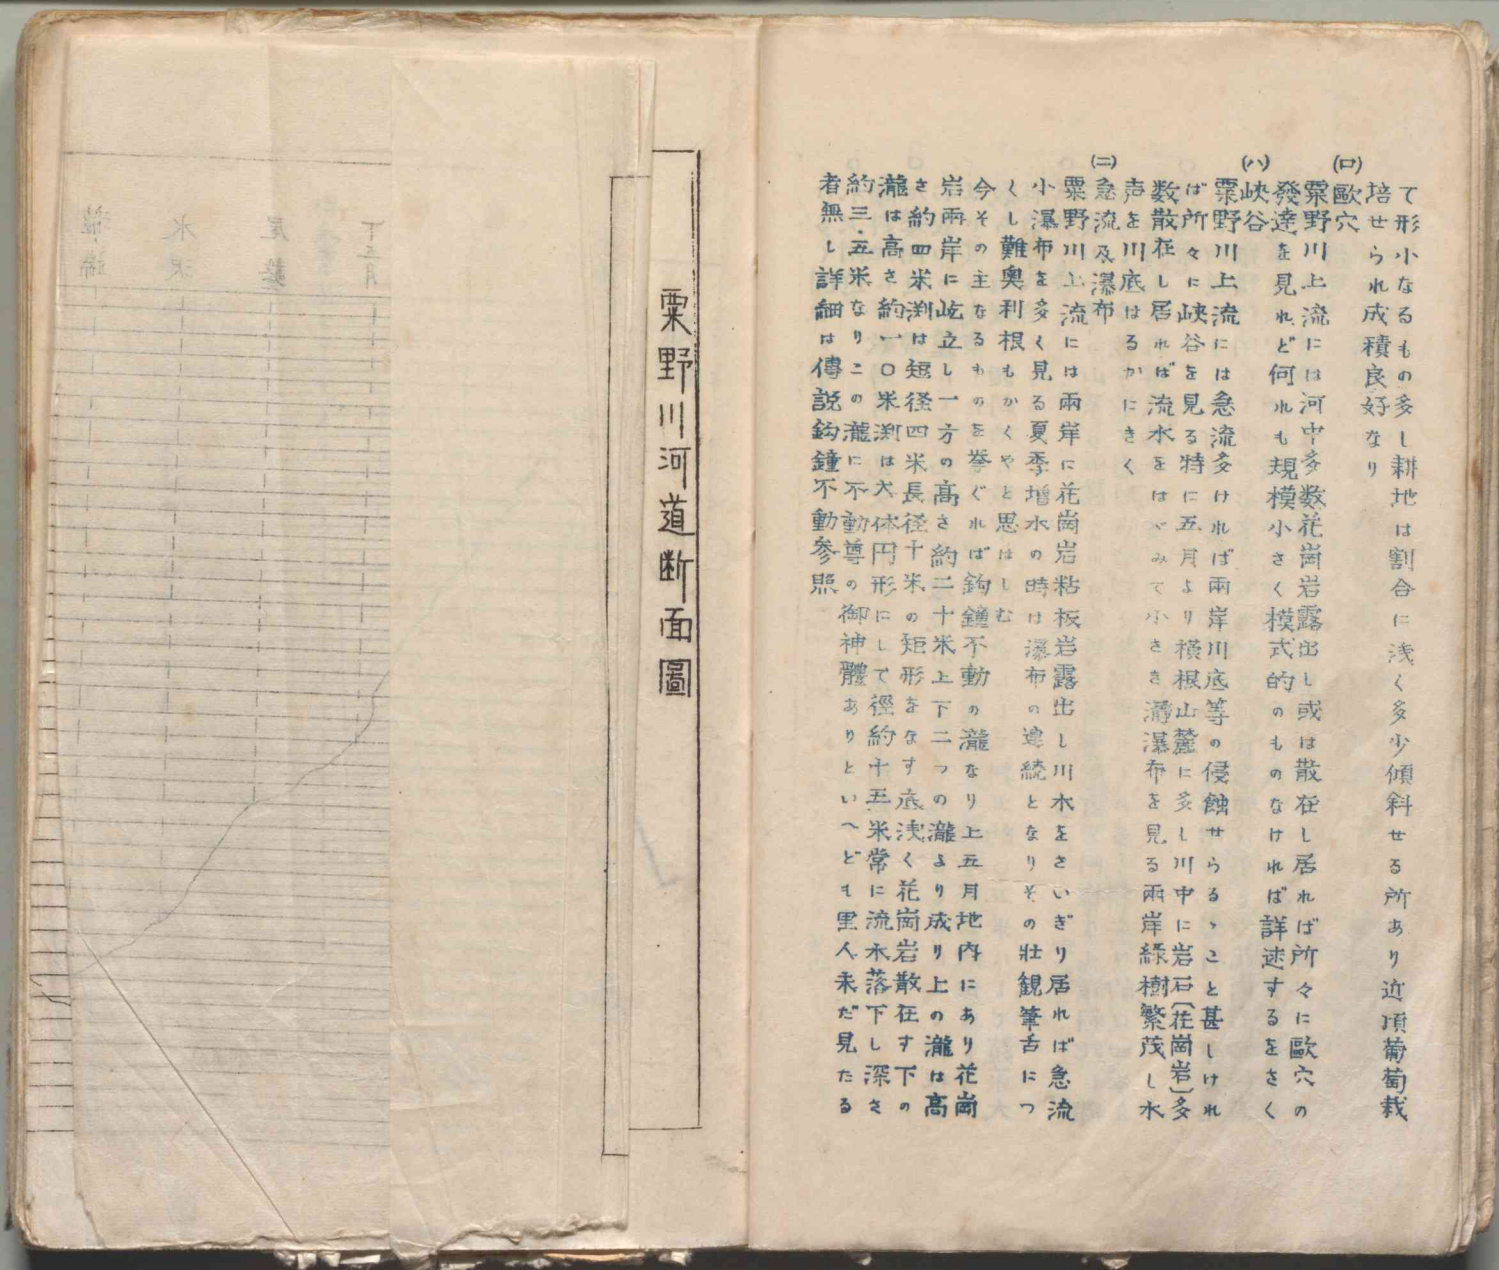 て形小なるもの多し耕地は割合に浅く多少傾斜せる所あり近頃葡萄栽
培せられ成積良好なり
(ロ)
歐穴
粟野川上流には河中多数花崗岩露出し或は散在し居れば所々に歐穴の
發達を見れど何れも規模小さく模式的のものなければ詳述するをさく
(ハ)
峡谷
粟野川上流には急流多ければ兩岸川底等の侵蝕せらるゝこと甚しけれ
ば所々に峡谷を見る特に五月より横根山麓に多し川中に岩石〔花崗岩〕多
数散在し居れば流水をはゞみて小さき瀞瀑布を見る兩岸緑樹繁茂し水
声を川底はるかにきく
(ニ)
急流及瀑布
粟野川上流には兩岸に花崗岩粘板岩露出し川水をさいぎり居れば急流
小瀑布を多く見る夏季増水の時は瀑布の連続となりその壮観筆舌につ
くし難奥利根もかくやと思はしむ
今その主なるものを挙ぐれば鈎鐘不動の瀧なり上五月地内にあり花崗
岩兩岸に屹立し一方の髙さ約二十米上下二つの瀧より成り上の瀧は髙
さ約四米渕は短径四米長径十米の矩形をなす底浅く花崗岩散在す下の
瀧は高さ約一〇米渕は大体円形にして径約十五米常に流水落下し深さ
約三.五米なりこの瀧に不動尊の御神體ありといへども里人未だ見たる
者無し詳細は傳説鈎鐘不動参照
粟野川河道断面圖